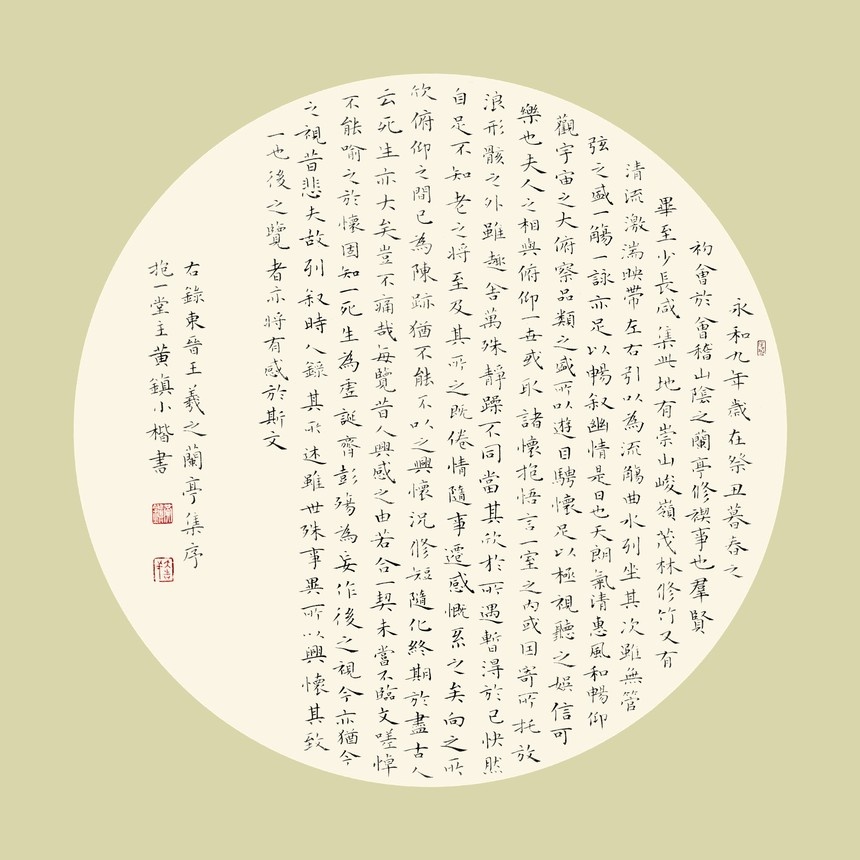 永和九年歲在癸丑暮春之
初會於會稽山陰之蘭亭修禊事也羣賢
畢至少長咸集此地有崇山峻嶺茂林修竹又有
清流激湍映帶左右引以為流觴曲水列坐其次雖無管
弦之盛一觴一詠亦足以暢叙幽情是日也天朗氣清惠風和暢仰
觀宇宙之大俯察品類之盛所以遊目騁懷足以極視聽之娛信可
樂也夫人之相與俯仰一世或取諸懷抱悟言一室之內或因寄所托放
浪形骸之外雖趣舍萬殊靜躁不同當其欣於所遇暫得於己快然
自足不知老之將至及其所之既倦情隨事遷感慨系之矣向之所
欣俯仰之間已為陳跡猶不能不以之興懷況修短隨化終期於盡古人
云死生亦大矣豈不痛哉每覽昔人興感之由若合一契未嘗不臨文嗟悼
不能喻之於懷固知一死生為虛誕齊彭殤為妄作後之視今亦猶今
之視昔悲夫故列叙時人錄其所述雖世殊事異所以興懷其致
一也後之覽者亦將有感於斯文
右錄東晉王羲之蘭亭集序
抱一堂主黃鎮小楷書